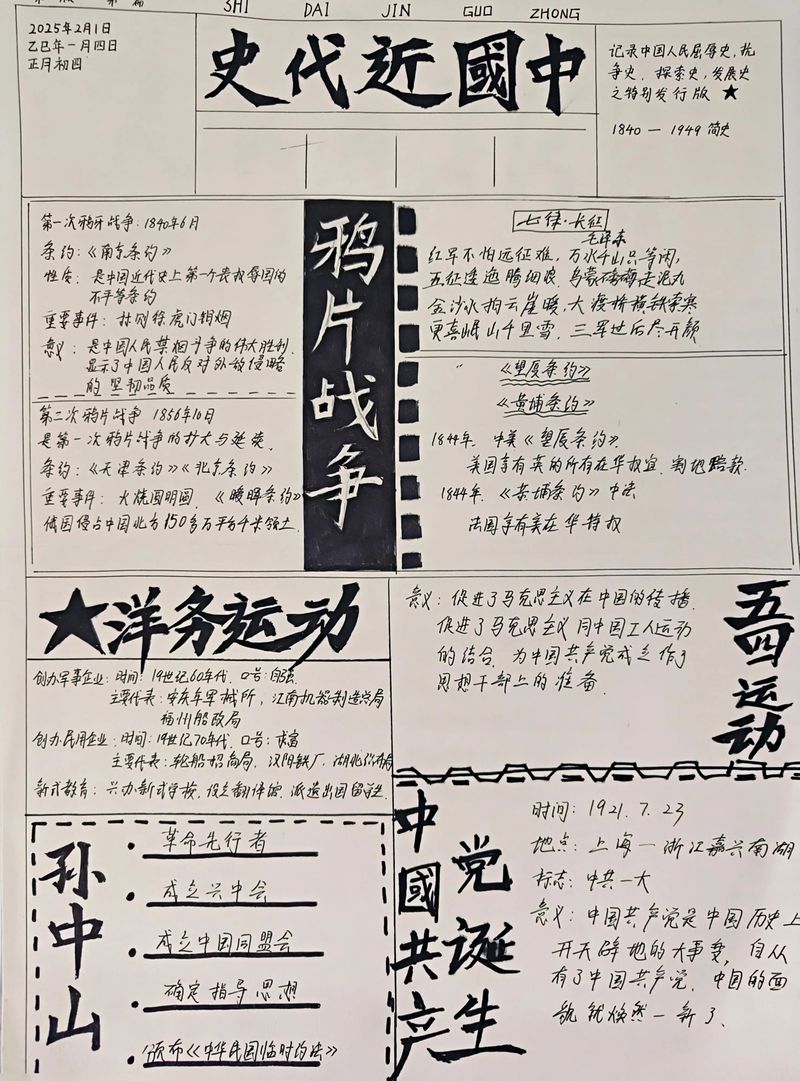 SHI DAI JIN GUO ZHONG
2025年2月1日
乙巳年一月四日
正月初四
史代近國中
记录中国人民屈辱史,抗
争史,探索史,发展史
之特别发行版 ★
1840 — 1949 简史
第一次鸦片战争:1840年6月
条约:《南京条约》
性质:是中国近代史上第一个丧权辱国的
不平等条约
重要事件:林则徐虎门销烟
意义:是中国人民禁烟斗争的伟大胜利,
显示了中国人民反对外敌侵略
的坚韧品质
第二次鸦片战争 1856年10日
是第一次鸦片战争的扩大与延续.
条约:《天津条约》《北京条约》
重要事件:火烧圆明园,《瑷珲条约》
俄国侵占中国北方150多万平方千米领土.
鸦片战争
七律·长征
毛泽东
红军不怕远征难,万水千山只等闲,
五征逶迤腾细浪,乌蒙磅礴走泥丸
金沙水拍云崖暖,大渡桥横铁索寒
更喜岷山千里雪,三军过后尽开颜
《望厦条约》
《黄埔条约》
1844年.中美《望厦条约》.
美国享有英的所有在华权宜.割地赔款.
1844年.《黄埔条约》中法
法国享有美在华特权
★洋务运动
创办军事企业:时间:19世纪60年代.口号:自强.
主要代表:安庆军械所,江南机器制造总局
福州船政局
创办民用企业:时间:19世纪70年代.口号:求富
主要代表:轮船招商局,汉阳铁厂,湖北织布局
新式教育:兴办新式学校,设立翻译馆.派遣出国留学生.
意义:促进了马克思主义在中国的传播.
促进了马克思主义同中国工人运动
的结合.为中国共产党成立作了
思想干部上的准备.
五四运动
孙中山
• 革命先行者
• 成立兴中会
• 成立中国同盟会
• 确定指导思想
• 颁布《中华民国临时约法》
中國共产
党诞生
时间:1921.7.23
地点:上海—浙江嘉兴南湖
标志:中共一大
意义:中国共产党是中国历史上
开天辟地的大事变,自从
有了中国共产党.中国的面
貌就焕然一新了.